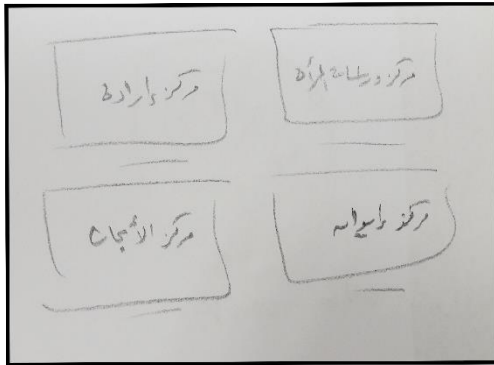 مركز دراسات المرأة
مركز إرادة
مركز
مركز الأبحاث